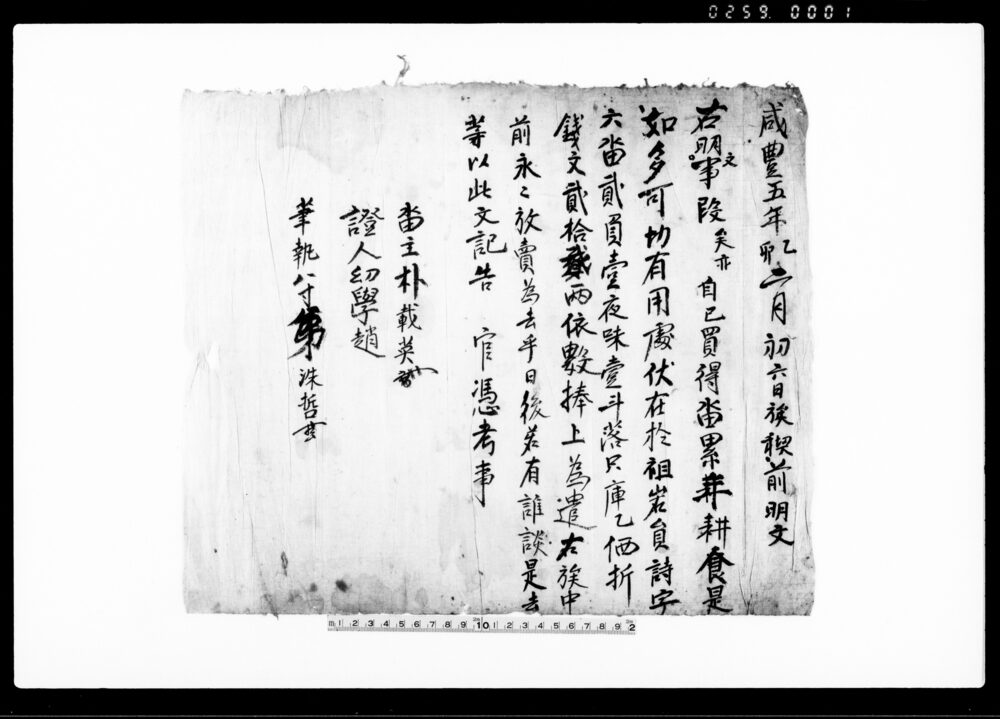 0259. 0001
咸豊五年乙卯二月初六日族稧前明文
右明文事段矣亦自己買得畓累年耕食是
如多可切有用處伏在於祖岩員詩字
六畓貳員壹夜味壹斗落只庫乙価折
錢文貳拾貳兩依數捧上為遣右族中
前永〻放賣為去乎日後若有誰談是去
等以此文記告 官憑考事
畓主朴載英
證人幼學趙
筆執 弟洙哲
m 1 2 3 4 5 6 7 8 9 10 1 2 3 4 5 6 7 8 9 2